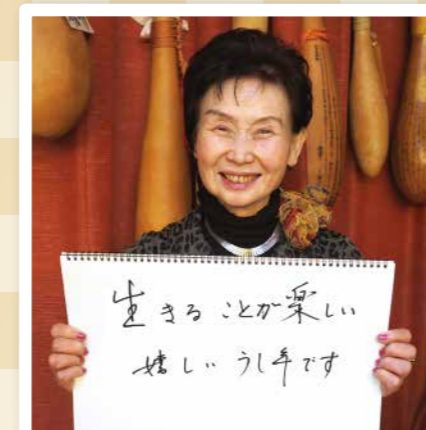 生きることが楽しい
嬉しい うし年です